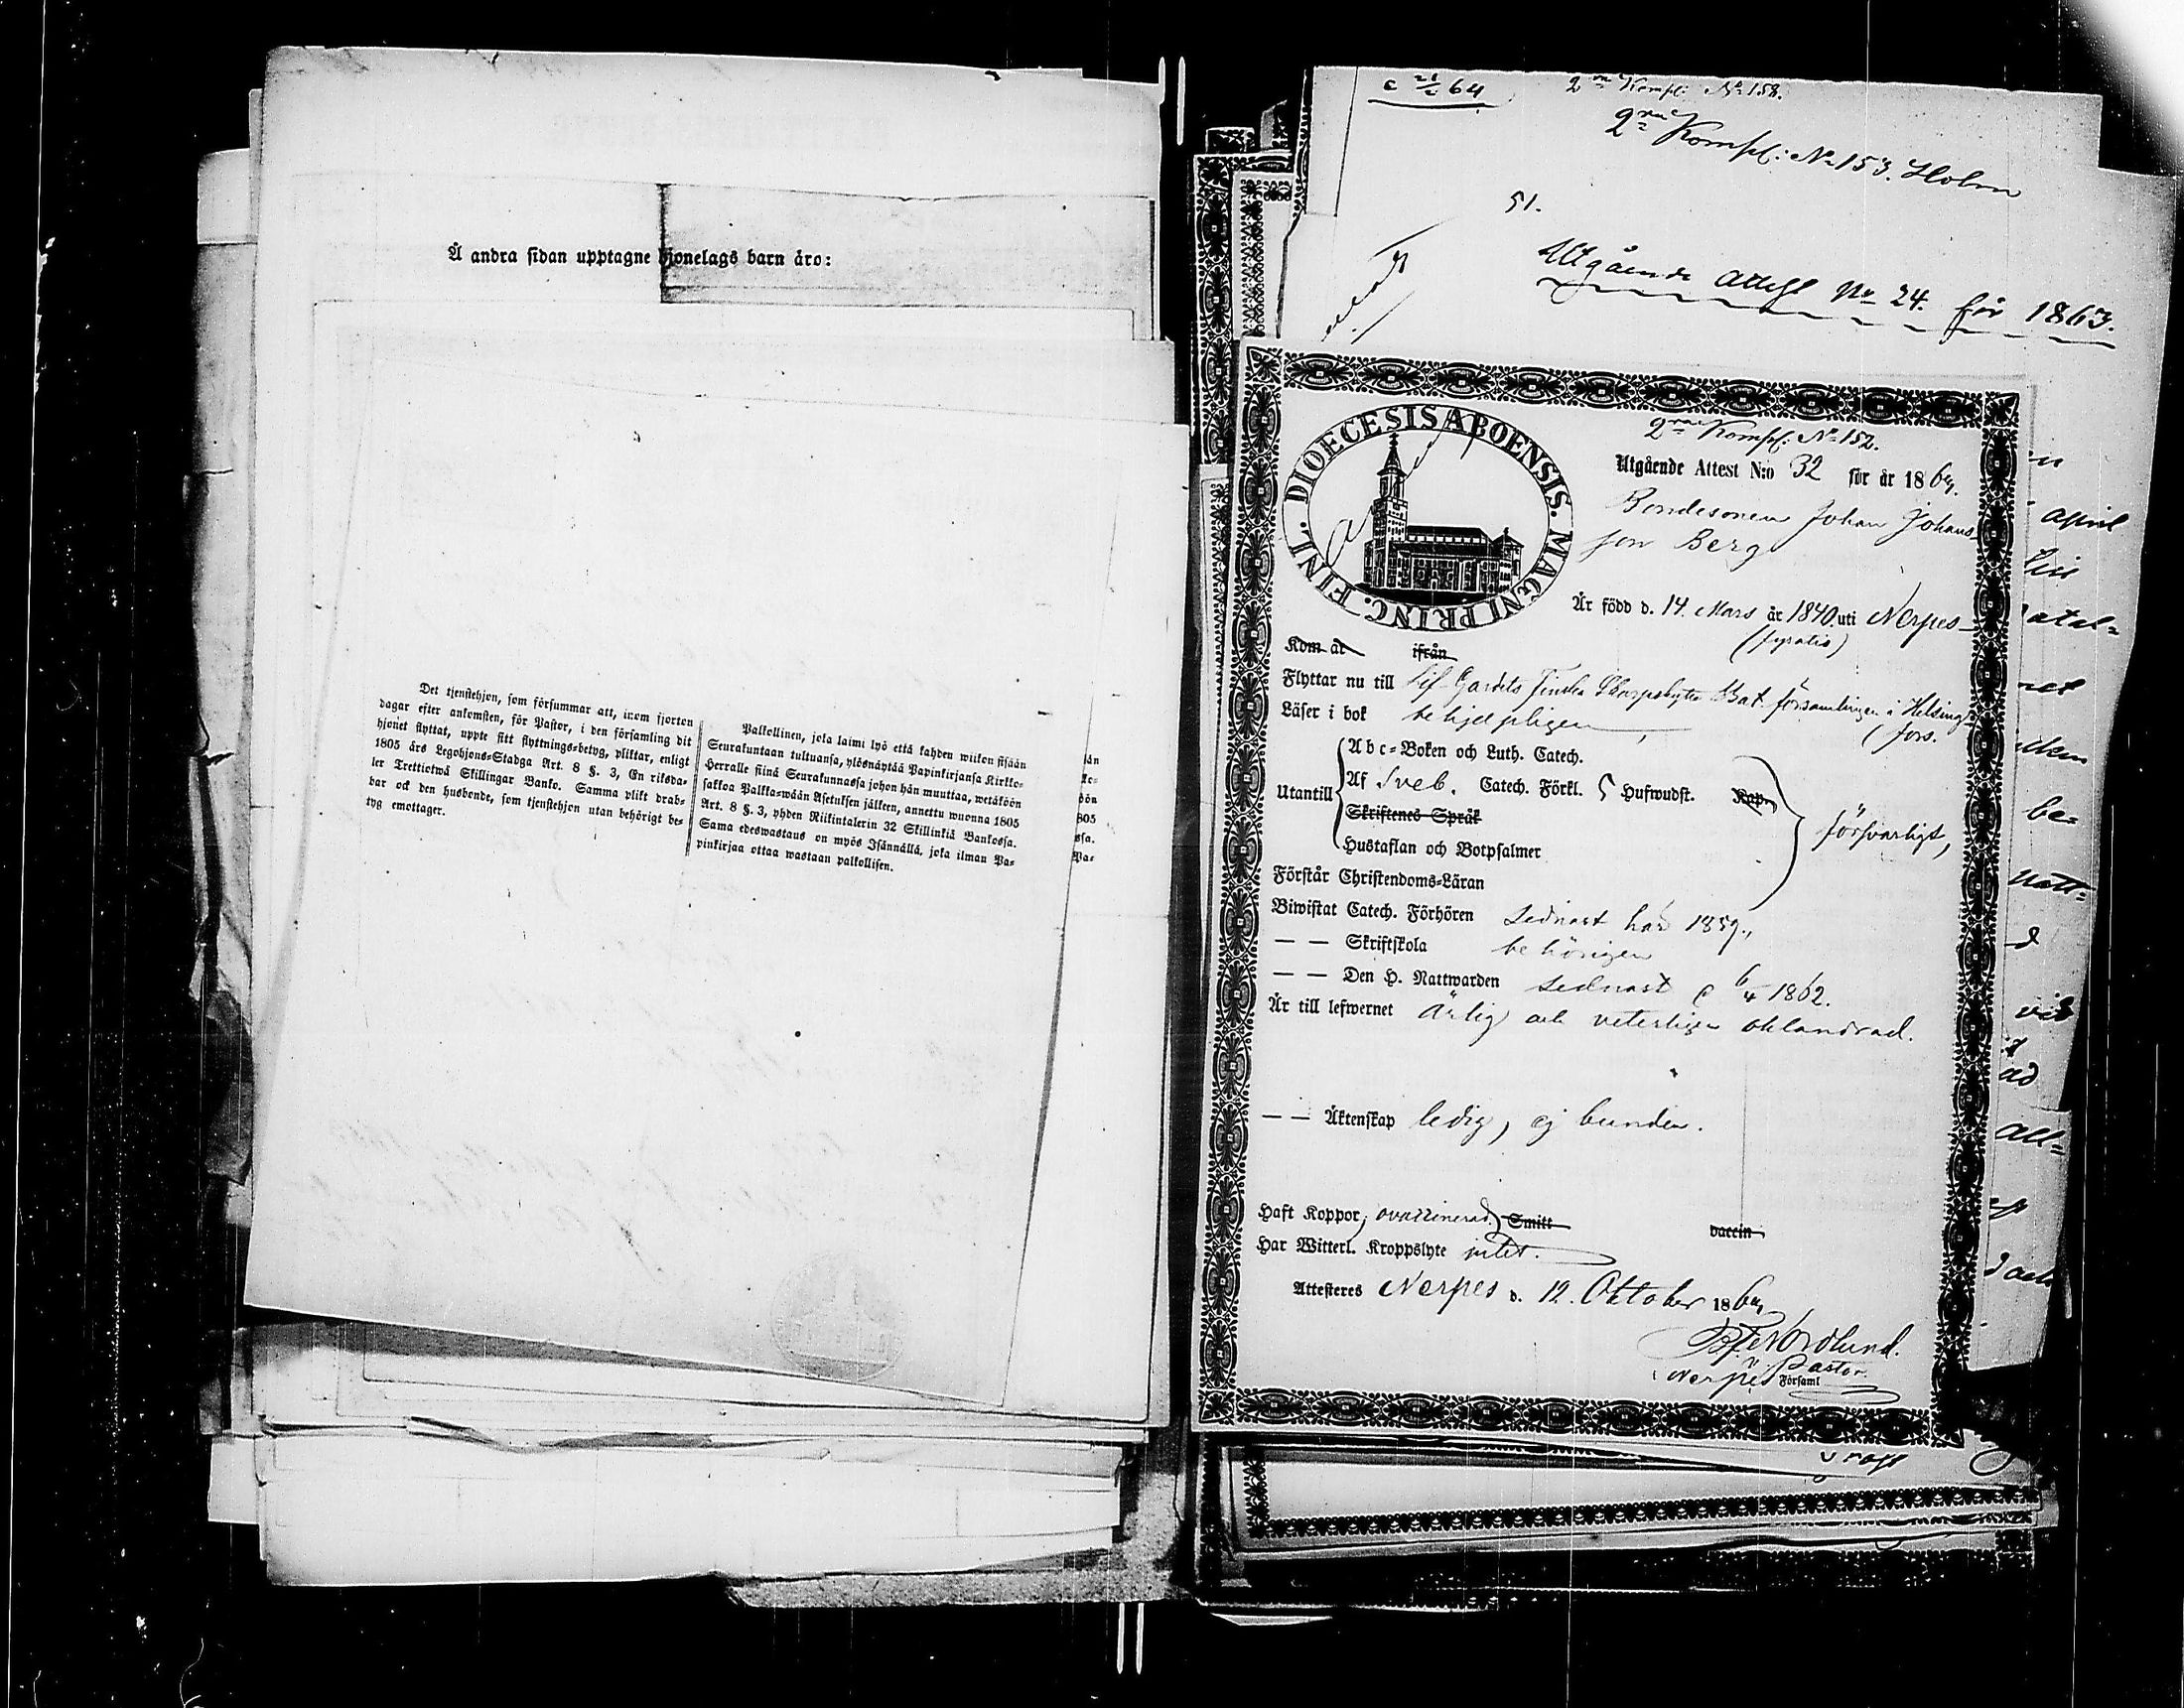 Å andra sidan upptagne hjonelags barn äro:
Det tjenstehjon, som försummar att, inom fjorton
dagar efter ankomsten, för Pastor, i den församling dit
hjonet flyttat, uppte sitt flyttnings-betyg, pliktar, enligt
1805 års Legohjons-Stadga Art. 8 §. 3, En riksda-
ler Trettietwå Skillingar Banko. Samma plikt drab-
bar ock den husbonde, som tjenstehjon utan behörigt be-
tyg emottager.
Palkollinen, joka laimi lyö että kahden wiikon sisään
Seurakuntaan tultuansa, ylösnäytää Papinkirjansa Kirkko-
Herralle siinä Seurakunnassa johon hän muuttaa, wetäköön
sakkoa Palkka-wään Asetuksen jälkeen, annettu wuonna 1805
Art. 8 §. 3, yhden Riikintalerin 32 Skillinkiä Bankossa.
Sama edeswastaus on myös Isännällä, joka ilman Pa-
pinkirjaa ottaa wastaan palkollisen.
än
ko-
öön
805
ssa.
Pa-
64
2ra Kompl: No 158.
2ra Kompl: No 153. Holm
51.
Utgående attest No 24. för 1863.
2ra Kompl: No 152.
DIOECESIS ABOENSIS. MAGNI PRINC. FINL.
Utgående Attest N:o 32 för år 1864.
Bondesonen Johan Johans
son Berg
Är född d. 14. Mars år 1840. uti Nerpes
(fyratio)
Kom år ifrån
Flyttar nu till Lif-Gardets Finska Skarpskytte Bat. församlingen i Helsing-
fors.
Läser i bok behjelpligen
Abc-Boken och Luth. Catech.
Utantill Af Sveb. Catech. Förkl. 5 Hufwudst. Kap.
Skriftenes Språk
försvarligt,
Hustaflan och Botpsalmer
Förstår Christendoms-Läran
Biwistat Catech. Förhören sednast här 1859.,
— — Skriftskola behörigen
— — Den H. Nattwarden sednast d 6/4 1862.
Är till lefwernet ärlig och veterligen oklandrad.
— — Äktenskap ledig, ej bunden.
Haft Koppor, ovaccinerad. Smitt vaccin
Har Witterl. Kroppslyte intet.
Attesteres Nerpes d. 12. Oktober 1864
Nordlund.
v. Pastor
Nerpes Församl
april
atal-
be-
natt-
vis
ad
all-